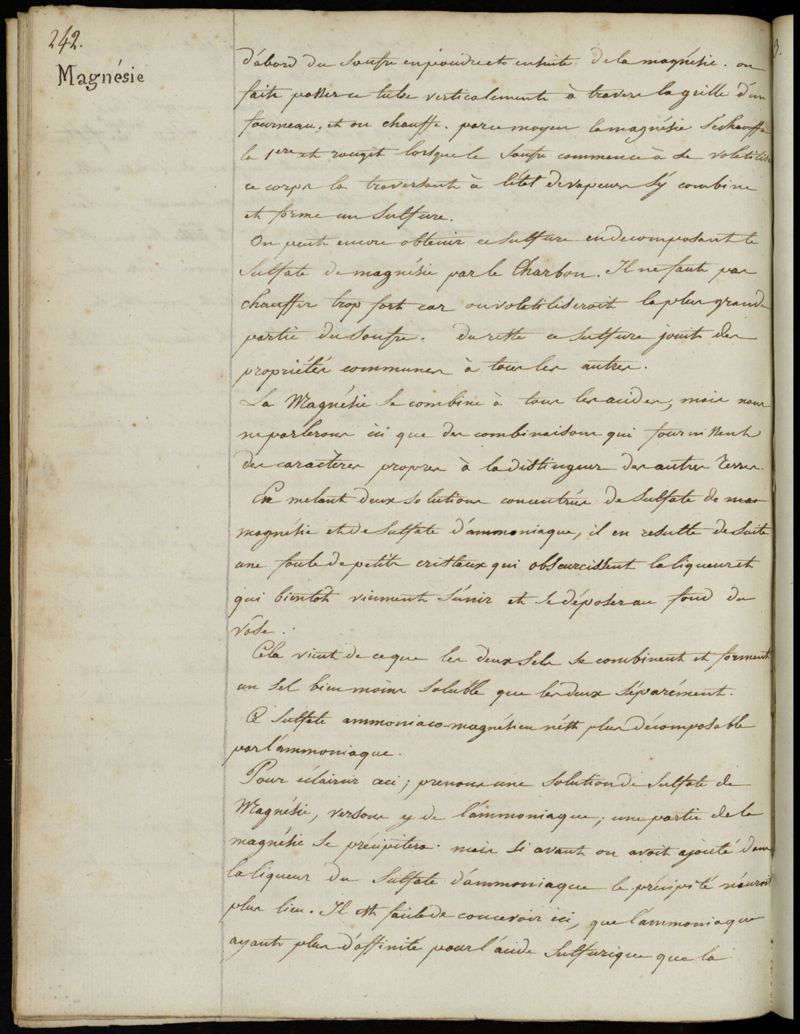 242.
Magnésie
d'abord du Soufre en poudre et ensuite de la magnésie. on
fait passer ce tube verticalement à travers la grille d'un
fourneau, et on chauffe. par ce moyen la magnésie s'echauffe
la 1ere et rougit lorsque le Soufre commence à se volatiliser
ce corps la traversant à l'état de vapeurs s'y combine
et forme un Sulfure.
On peut encore obtenir ce sulfure en decomposant le
Sulfate de magnésie par le Charbon. Il ne faut pas
chauffer trop fort car on volatiliseroit la plus grande
partie du Soufre. du reste ce sulfure jouit des
propriétés communes à tous les autres.
La Magnésie se combine à tous les acides, mais nous
ne parlerons ici que des combinaisons qui fournissent
des caractères propres à la distinguer des autres Terres.
En melant deux solutions concentrées de Sulfate de ma
magnésie et de Sulfate d'ammoniaque, il en resulte de suite
une foule de petits cristaux qui obscurcissent la liqueur et
qui bientôt viennent s'unir et se déposer au fond du
vase.
Cela vient de ce que les deux Sels se combinent et forment
un sel bien moins soluble que les deux séparément.
Ce Sulfate ammoniaco-magnésien n'est plus décomposable
par l'ammoniaque.
Pour éclaircir ceci; prenons une solution de Sulfate de
Magnésie, versons y de l'ammoniaque; une partie de la
magnésie se précipitera. mais si avant on avoit ajouté dans
la liqueur du Sulfate d'ammoniaque le précipité n'auroit
plus lieu. Il est facile de concevoir ici, que l'ammoniaque
ayant plus d'affinité pour l'acide Sulfurique que la